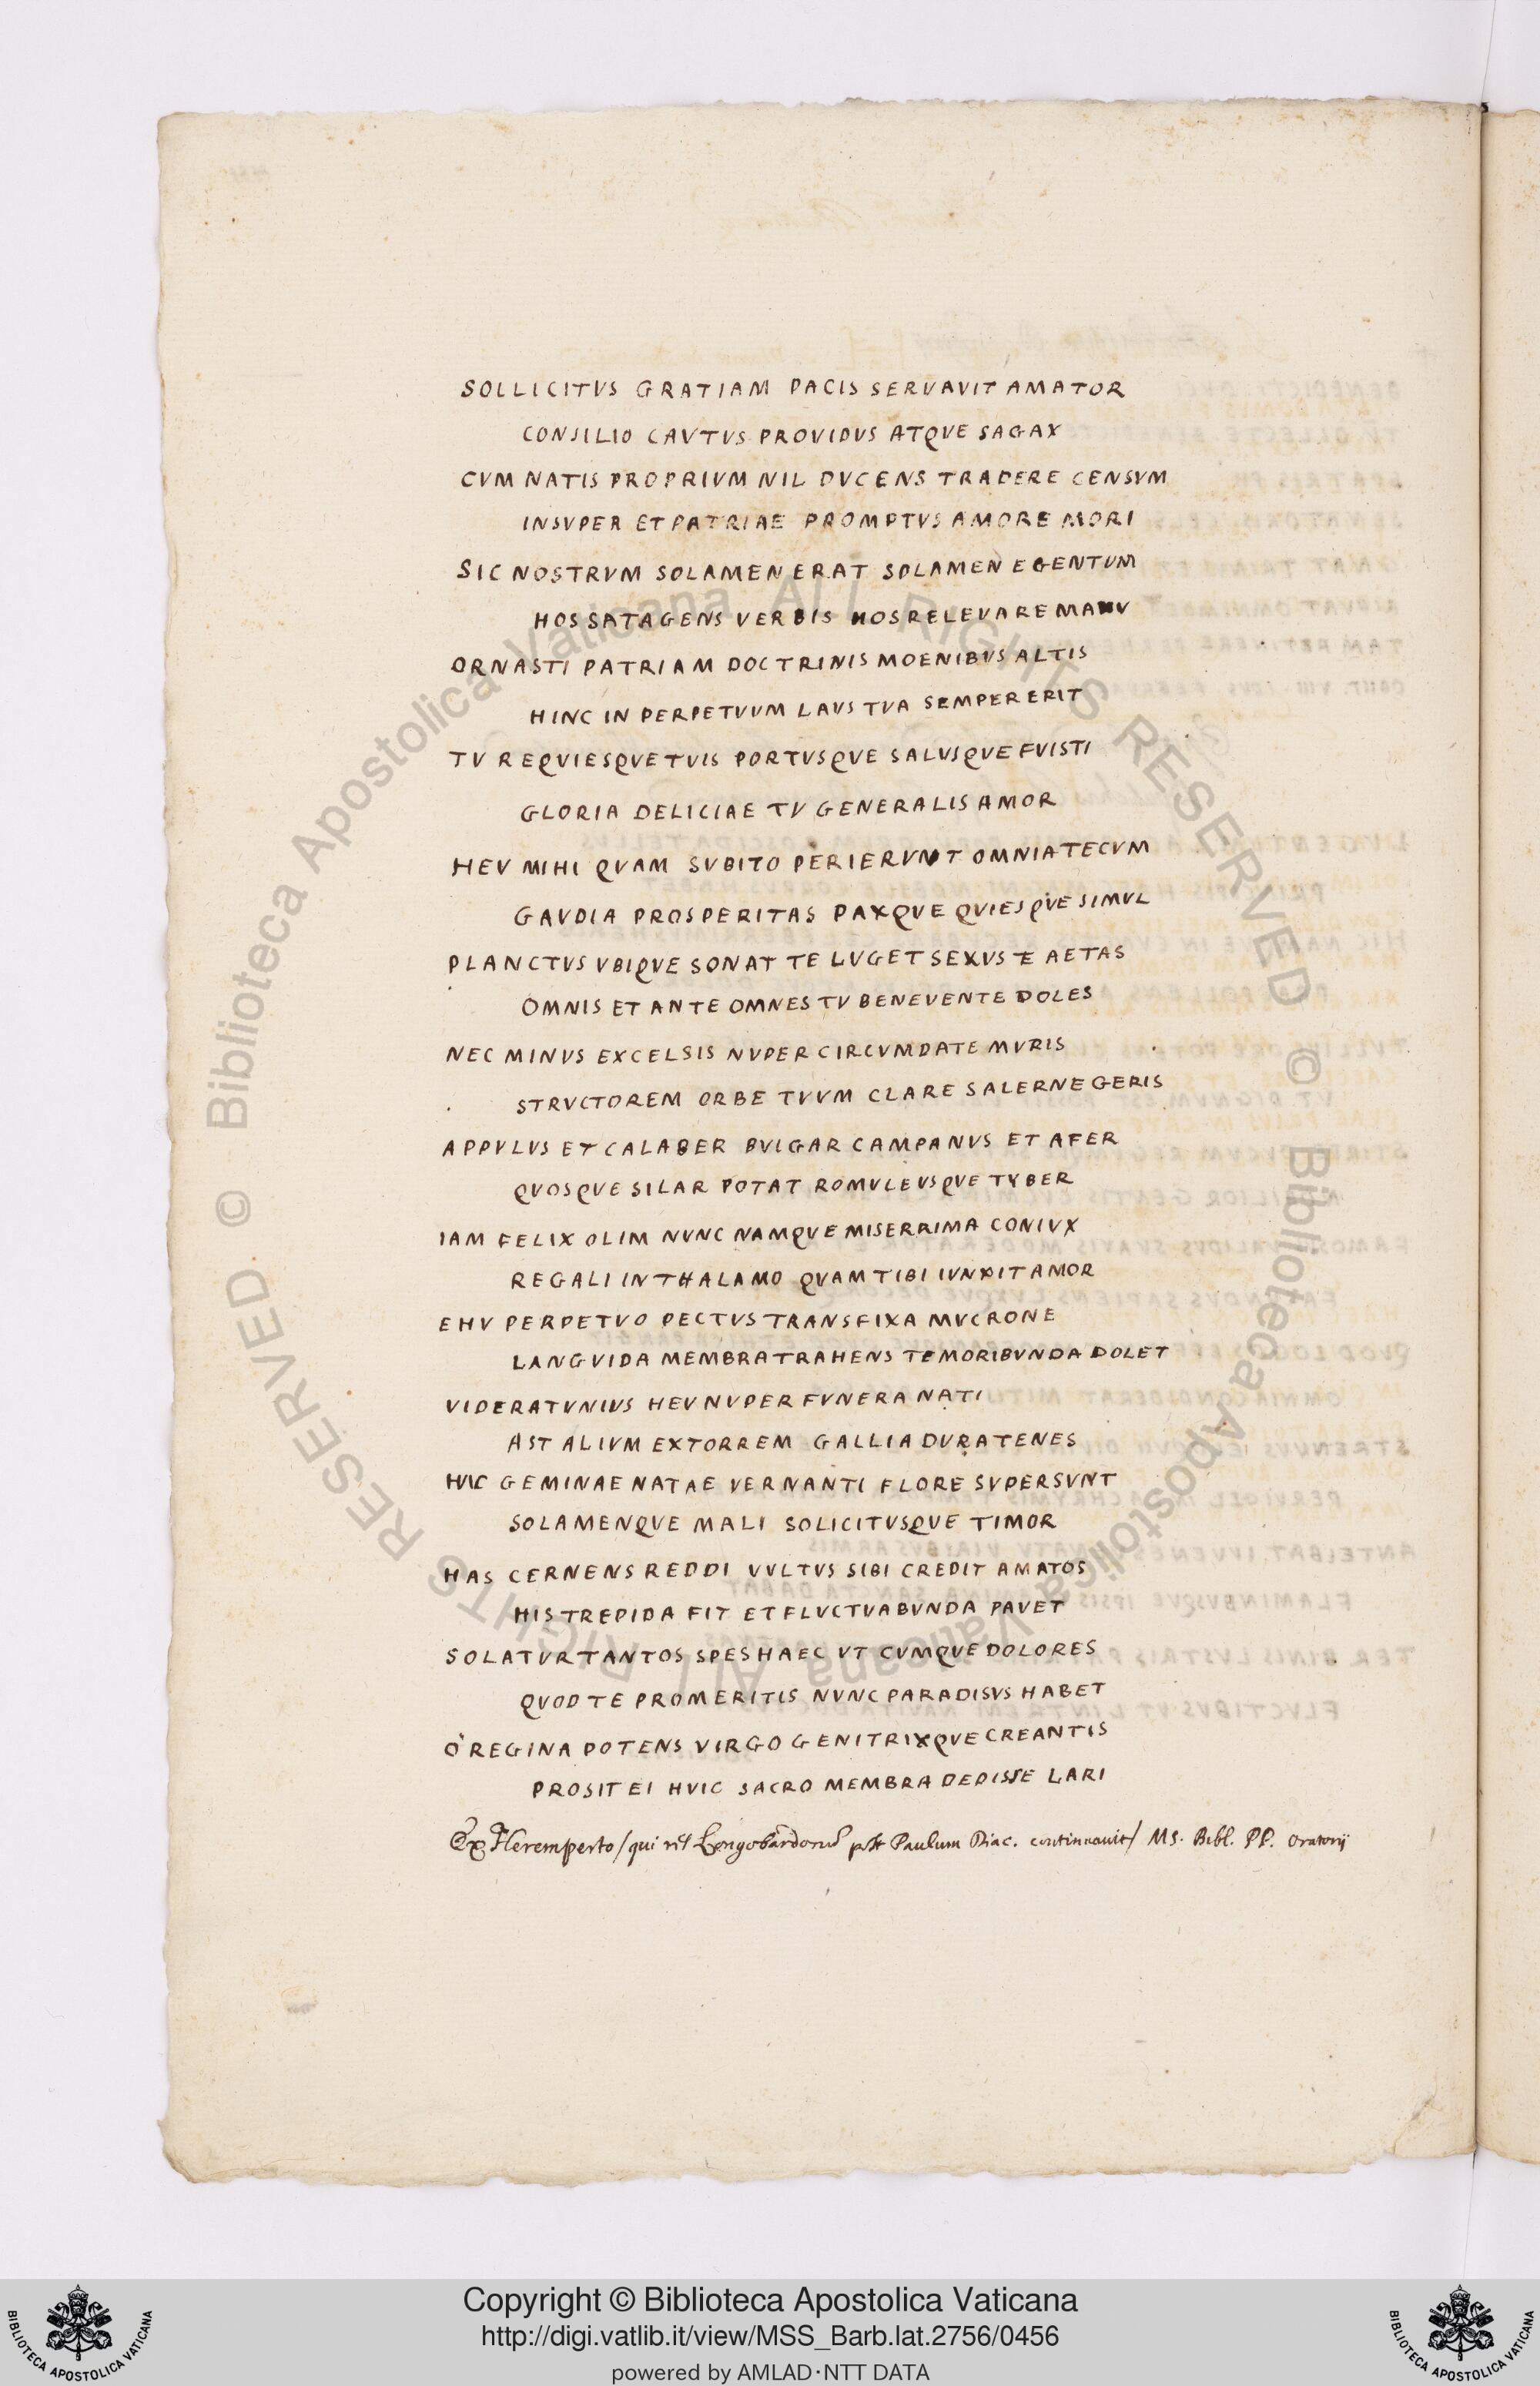 SOLLICITVS GRATIAM PACIS SERVAVIT AMATOR
CONSILIO CAVTVS PROVIDVS ATQVE SAGAX
CVM NATIS PROPRIVM NIL DVCENS TRADERE CENSVM
INSVPER ET PATRIAE PROMPTVS AMORE MORI
SIC NOSTRVM SOLAMEN ERAT SOLAMEN EGENTVM
HOS SATAGENS VERBIS HOS RELEVARE MANV
ORNASTI PATRIAM DOCTRINIS MOENIBVS ALTIS
HINC IN PERPETVVM LAVS TVA SEMPER ERIT
TV REQVIESQVE TVIS PORTVSQVE SALVSQVE FVISTI
GLORIA DELICIAE TV GENERALIS AMOR
HEV MIHI QVAM SVBITO PERIERVNT OMNIA TECVM
GAVDIA PROSPERITAS PAXQVE QVIESQVE SIMVL
PLANCTVS VBIQVE SONAT TE LVGET SEXVS E AETAS
OMNIS ET ANTE OMNES TV BENEVENTE DOLES
NEC MINVS EXCELSIS NVPER CIRCVMDATE MVRIS
STRVCTOREM ORBE TVVM CLARE SALERNE GERIS
APPVLVS ET CALABER BVLGAR CAMPANVS ET AFER
QVOSQVE SILAR POTAT ROMVLEVSQVE TYBER
IAM FELIX OLIM NVNC NAMQVE MISERRIMA CONIVX
REGALI IN THALAMO QVAM TIBI IVNXIT AMOR
EHV PERPETVO PECTVS TRANSFIXA MVCRONE
LANGVIDA MEMBRA TRAHENS TE MORIBVNDA DOLET
VIDERAT VNIVS HEV NVPER FVNERA NATI
AST ALIVM EXTORREM GALLIA DVRA TENES
HVIC GEMINAE NATAE VERNANTI FLORE SVPERSVNT
SOLAMENQVE MALI SOLICITVSQVE TIMOR
HAS CERNENS REDDI VVLTVS SIBI CREDIT AMATOS
HIS TREPIDA FIT ET FLVCTVABVNDA PAVET
SOLATVR TANTOS SPES HAEC VT CVMQVE DOLORES
QVOD TE PRO MERITIS NVNC PARADISVS HABET
O REGINA POTENS VIRGO GENITRIXQVE CREANTIS
PROSIT EI HVIC SACRO MEMBRA DEDISSE LARI
Ex Heremperto / qui Longobardorum post Paulum Diac. continuavit / MS. Bibl. PP. Oratorij
Copyright © Biblioteca Apostolica Vaticana
http://digi.vatlib.it/view/MSS_Barb.lat.2756/0456
powered by AMLAD·NTT DATA
BIBLIOTECA APOSTOLICA VATICANA
BIBLIOTECA APOSTOLICA VATICANA
© Biblioteca Apostolica Vaticana ALL RIGHTS RESERVED © Biblioteca Apostolica Vaticana ALL RIGHTS RESERVED